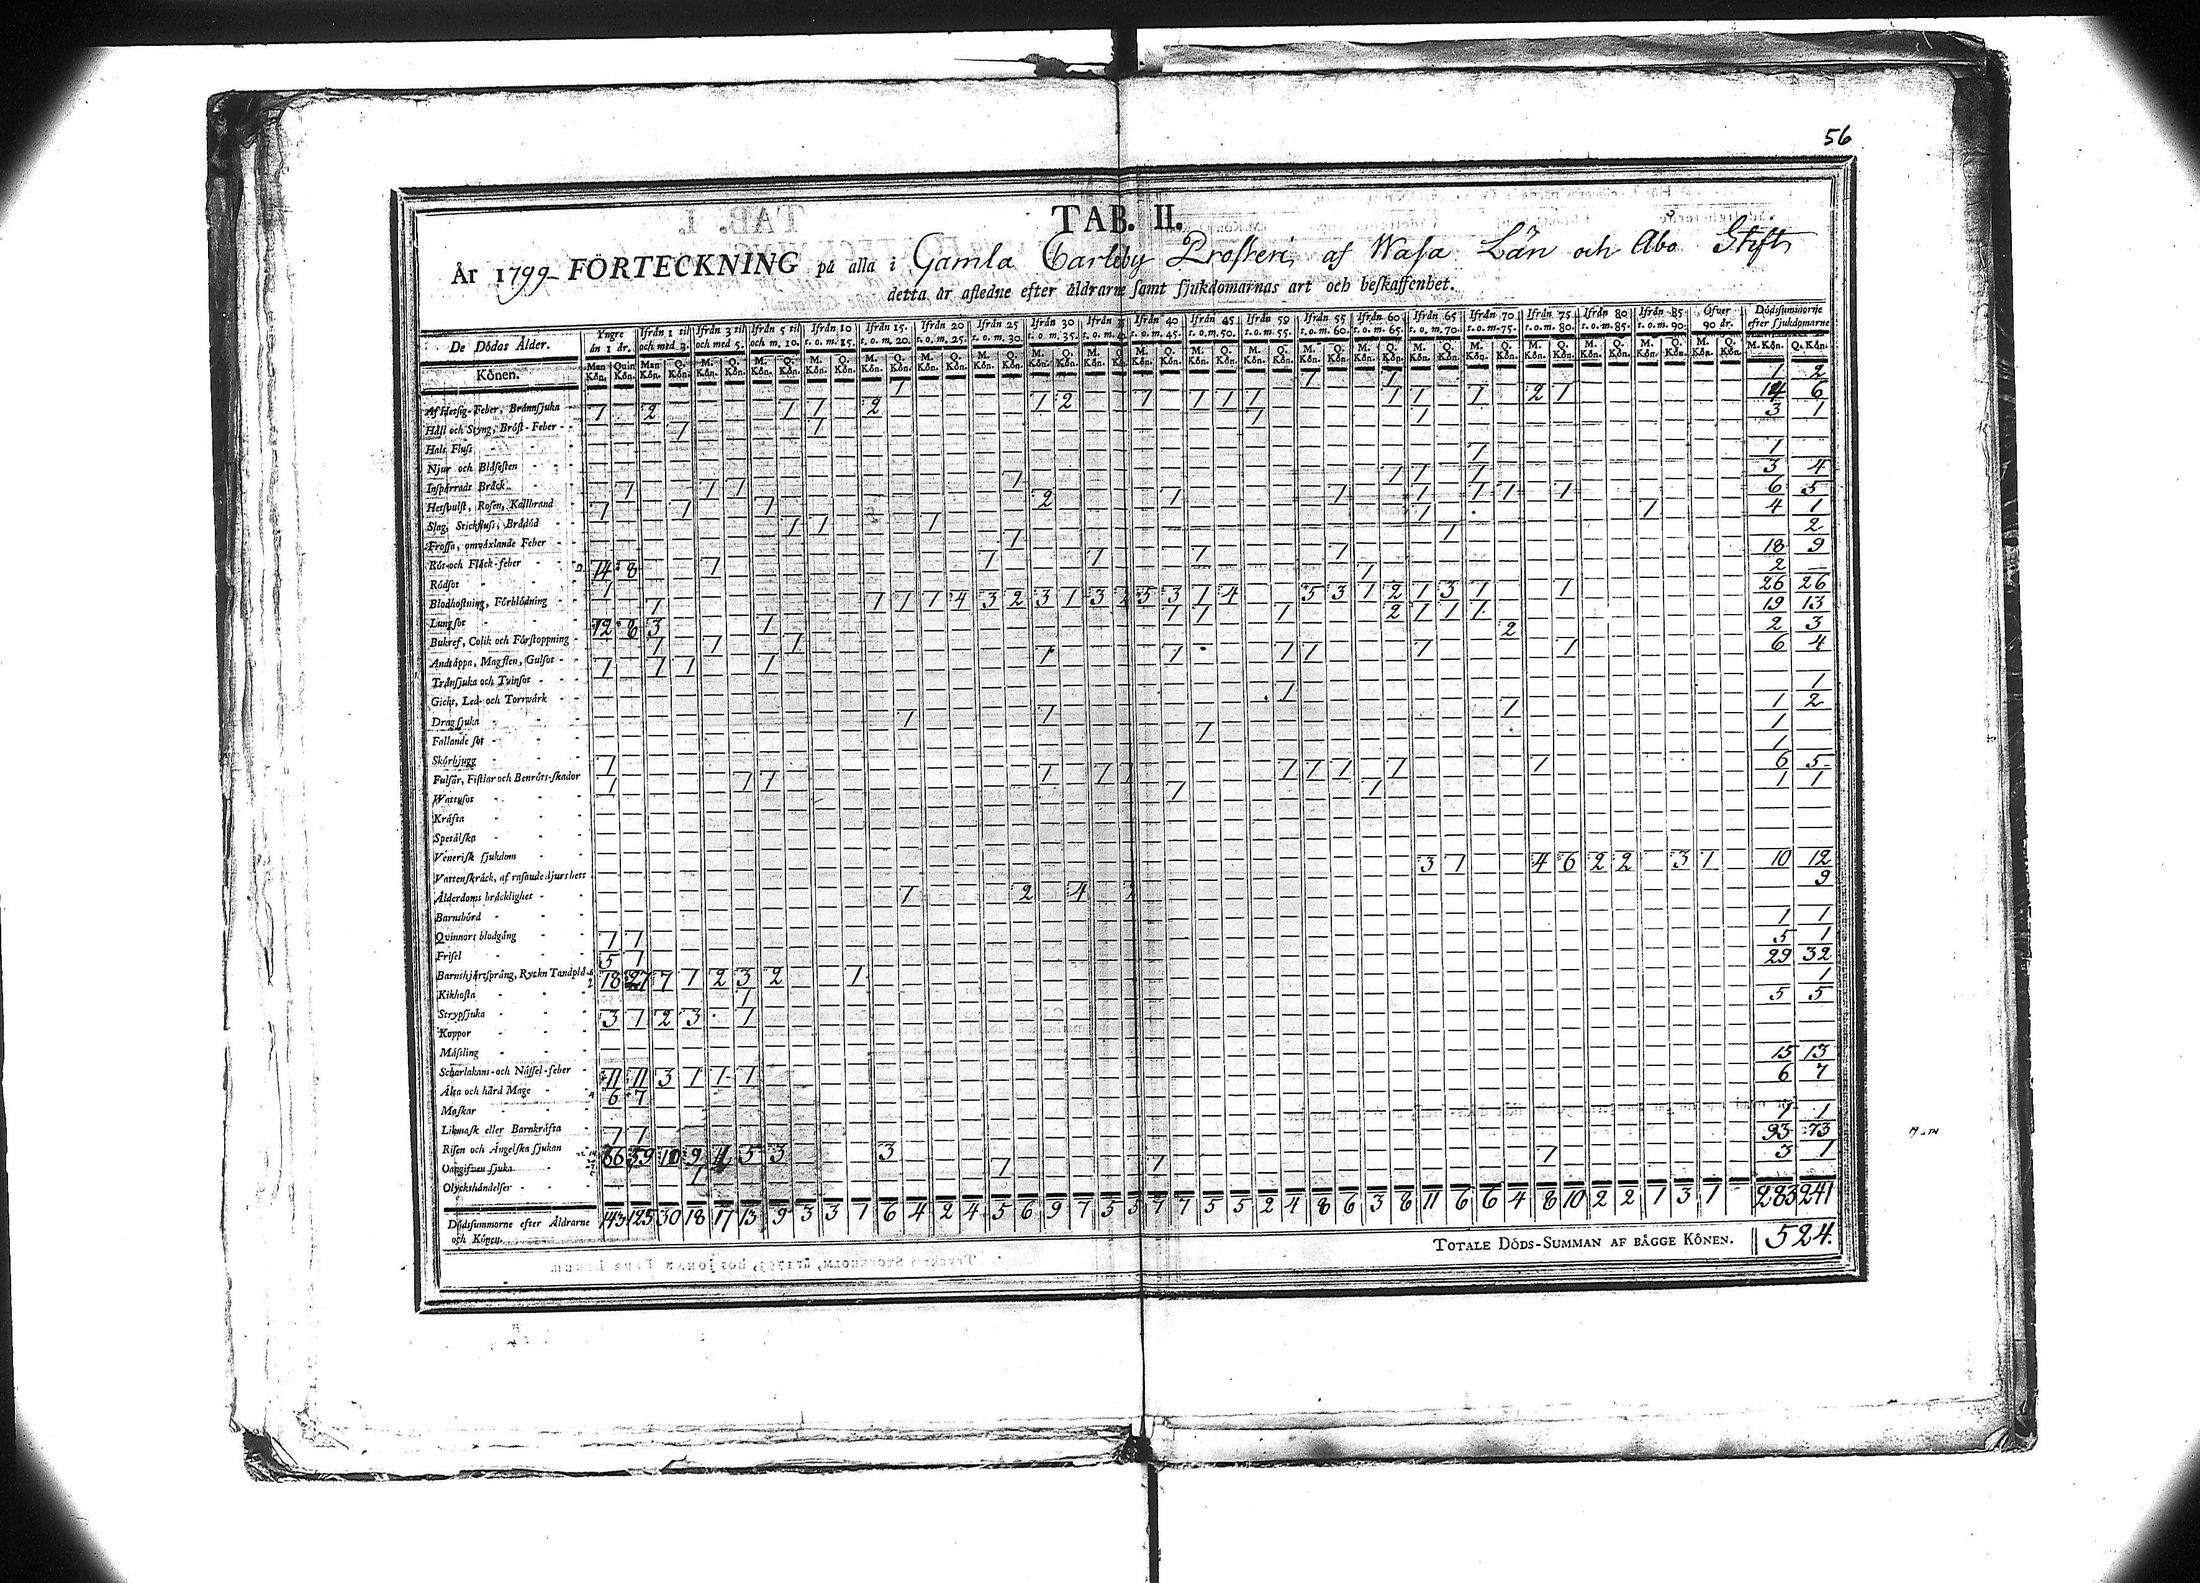 56
TAB. II.
År 1799 FÖRTECKNING på alla i Gamla Carleby Prosteri af Wasa Län och Åbo Stift
detta år afledne efter åldrarne samt sjukdomarnas art och beskaffenhet.
De Dödas Ålder. Yngre än 1 år. Ifrån 1 til och med 3. Ifrån 3 til och med 5. Ifrån 5 til och m. 10. Ifrån 10 t. o. m. 15. Ifrån 15. t. o. m. 20. Ifrån 20 t. o. m. 25. Ifrån 25 t. o. m. 30. Ifrån 30 t. o. m. 35. Ifrån t. o. m. Ifrån 40 t. o. m. 45. Ifrån 45. t. o. m. 50. Ifrån 50 t. o. m. 55. Ifrån 55 t. o. m. 60. Ifrån 60. t. o. m. 65. Ifrån 65 t. o. m. 70. Ifrån 70 t. o. m. 75. Ifrån 75 t. o. m. 80. Ifrån 80 t. o. m. 85. Ifrån 85. t. o. m. 90. Öfver 90 år. Dödssummorne efter sjukdomarne
Könen. Man Kön. Quin Kön. Man Kön. Q. Kön. M. Kön. Q. Kön. M. Kön. Q. Kön.
1 2
Af Hetsig-Feber, Brännsjuka 14 6
Håll och Styng, Bröst-Feber 3 1
Hals Fluss
Njur och Blåsesten 1
Inspärradt Bråck 3 4
Hetsvulst, Rosen, Kallbrand 6 5
Slag, Stickfluss, Brådöd 4 1
Frossa, omväxlande Feber 2
Röt- och Fläck-feber 14 8 1 18 9
Rödsot 1 2
Blodhostning, Förblödning 1 1 1 1 4 3 2 3 1 3 5 3 1 4 5 3 1 2 1 3 1 1 26 26
Lungsot 12 8 3 1 1 1 1 2 1 1 1 19 13
Bukref, Colik och Förstoppning 1 1 1 2 2 3
Andtäppa, Magsten, Gulsot 1 1 1 1 1 1 1 1 1 1 6 4
Tränsjuka och Tvinsot
Gicht, Led- och Torrvärk 1 1
Dragsjuka 1 1 1 1 2
Fallande sot 1 1
Skörbjugg 1 1
Fulsår, Fistlar och Benröts-skador 6 5
Wattusot 1 1
Kräfta
Spetälska
Venerisk sjukdom
Vattenskräck, af rasande djurs bett 3 1 4 6 2 2 3 1 10 12
Ålderdoms bräcklighet 1 2 4 9
Barnsbörd
Qvinnors blodgång 1 1 1 1
Frisel 5 1 5 1
Barnshjärtsprång, Ryckn Tandplå 18 27 7 1 2 3 2 1 29 32
Kikhosta 1 1
Strypsjuka 3 1 2 3 1 5 5
Koppor
Mässling
Scharlakans- och Nässel-feber 11 11 3 1 1 1 15 13
Älta och hård Mage 6 7 6 7
Maskar
Likmask eller Barnkräfta 1 1 1 1
Risen och Ängelska sjukan 66 59 10 9 5 3 3 1 93 73
Oangifven sjuka 1 1 3 1
Olyckshändelser
Dödssummorne efter Åldrarne och Könen. 143 125 30 18 17 13 9 3 3 1 6 4 2 4 5 6 9 7 5 5 7 7 5 5 2 4 8 6 3 8 11 6 6 4 8 10 2 2 1 3 1 283 241
TOTALE DÖDS-SUMMAN AF BÄGGE KÖNEN. 524.